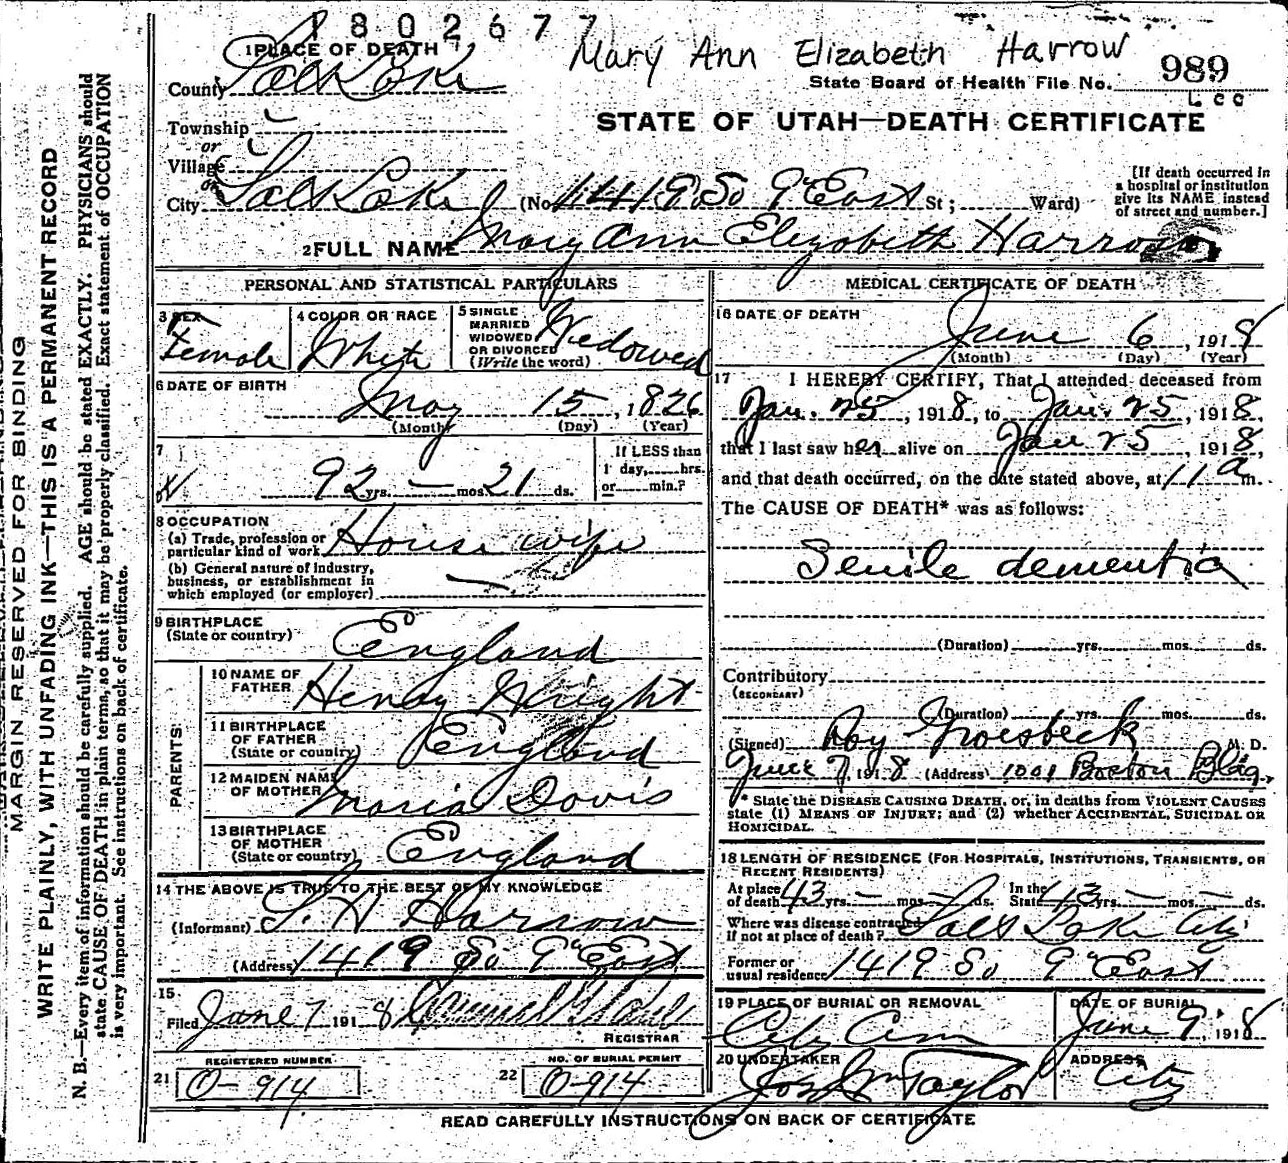 1802677
Mary Ann Elizabeth Harrow
1 PLACE OF DEATH
County Salt Lake
State Board of Health File No. 989
Township
or
Village
or
STATE OF UTAH—DEATH CERTIFICATE
City Salt Lake (No. 1419 So 9" East St; Ward)
[If death occurred in
a hospital or institution
give its NAME instead
of street and number.]
2 FULL NAME Mary Ann Elizabeth Harrow
PERSONAL AND STATISTICAL PARTICULARS
3 SEX
Female
4 COLOR OR RACE
White
5 SINGLE
MARRIED
WIDOWED
OR DIVORCED
(Write the word)
Widowed
6 DATE OF BIRTH
May 15, 1826
(Month) (Day) (Year)
7
92 yrs. — mos. 21 ds.
If LESS than
1 day,......hrs.
or......min.?
8 OCCUPATION
(a) Trade, profession or
particular kind of work House wife
(b) General nature of industry,
business, or establishment in
which employed (or employer) —
9 BIRTHPLACE
(State or country) England
PARENTS
10 NAME OF
FATHER Henry Wright
11 BIRTHPLACE
OF FATHER
(State or country) England
12 MAIDEN NAME
OF MOTHER Maria Davis
13 BIRTHPLACE
OF MOTHER
(State or country) England
14 THE ABOVE IS TRUE TO THE BEST OF MY KNOWLEDGE
(Informant) Harrow
(Address) 1419 So 9" East
15
Filed June 7 1918
REGISTRAR
REGISTERED NUMBER
21 O-914
NO. OF BURIAL PERMIT
22 O-914
MEDICAL CERTIFICATE OF DEATH
16 DATE OF DEATH
June 6, 1918
(Month) (Day) (Year)
17 I HEREBY CERTIFY, That I attended deceased from
Jan. 25, 1918, to Jan. 25, 1918
that I last saw her alive on Jan 25, 1918,
and that death occurred, on the date stated above, at 11 a m.
The CAUSE OF DEATH* was as follows:
Senile dementia
(Duration) yrs. mos. ds.
Contributory
(SECONDARY)
(Duration) yrs. mos. ds.
(Signed) Roy Groesbeck M. D.
June 7 1918 (Address) 1001 Boston Bldg.
* State the DISEASE CAUSING DEATH, or, in deaths from VIOLENT CAUSES
state (1) MEANS OF INJURY; and (2) whether ACCIDENTAL, SUICIDAL OR
HOMICIDAL.
18 LENGTH OF RESIDENCE (FOR HOSPITALS, INSTITUTIONS, TRANSIENTS, OR
RECENT RESIDENTS)
At place
of death 43 yrs. — mos. — ds.
In the
State 43 yrs. — mos. — ds.
Where was disease contracted
If not at place of death? Salt Lake City
Former or
usual residence 1419 So 9" East
19 PLACE OF BURIAL OR REMOVAL
City Cem
DATE OF BURIAL
June 9", 1918
20 UNDERTAKER
Jos Wm Taylor
ADDRESS
City
READ CAREFULLY INSTRUCTIONS ON BACK OF CERTIFICATE
MARGIN RESERVED FOR BINDING
WRITE PLAINLY, WITH UNFADING INK—THIS IS A PERMANENT RECORD
N. B.—Every item of information should be carefully supplied. AGE should be stated EXACTLY. PHYSICIANS should
state CAUSE OF DEATH in plain terms, so that it may be properly classified. Exact statement of OCCUPATION
is very important. See instructions on back of certificate.